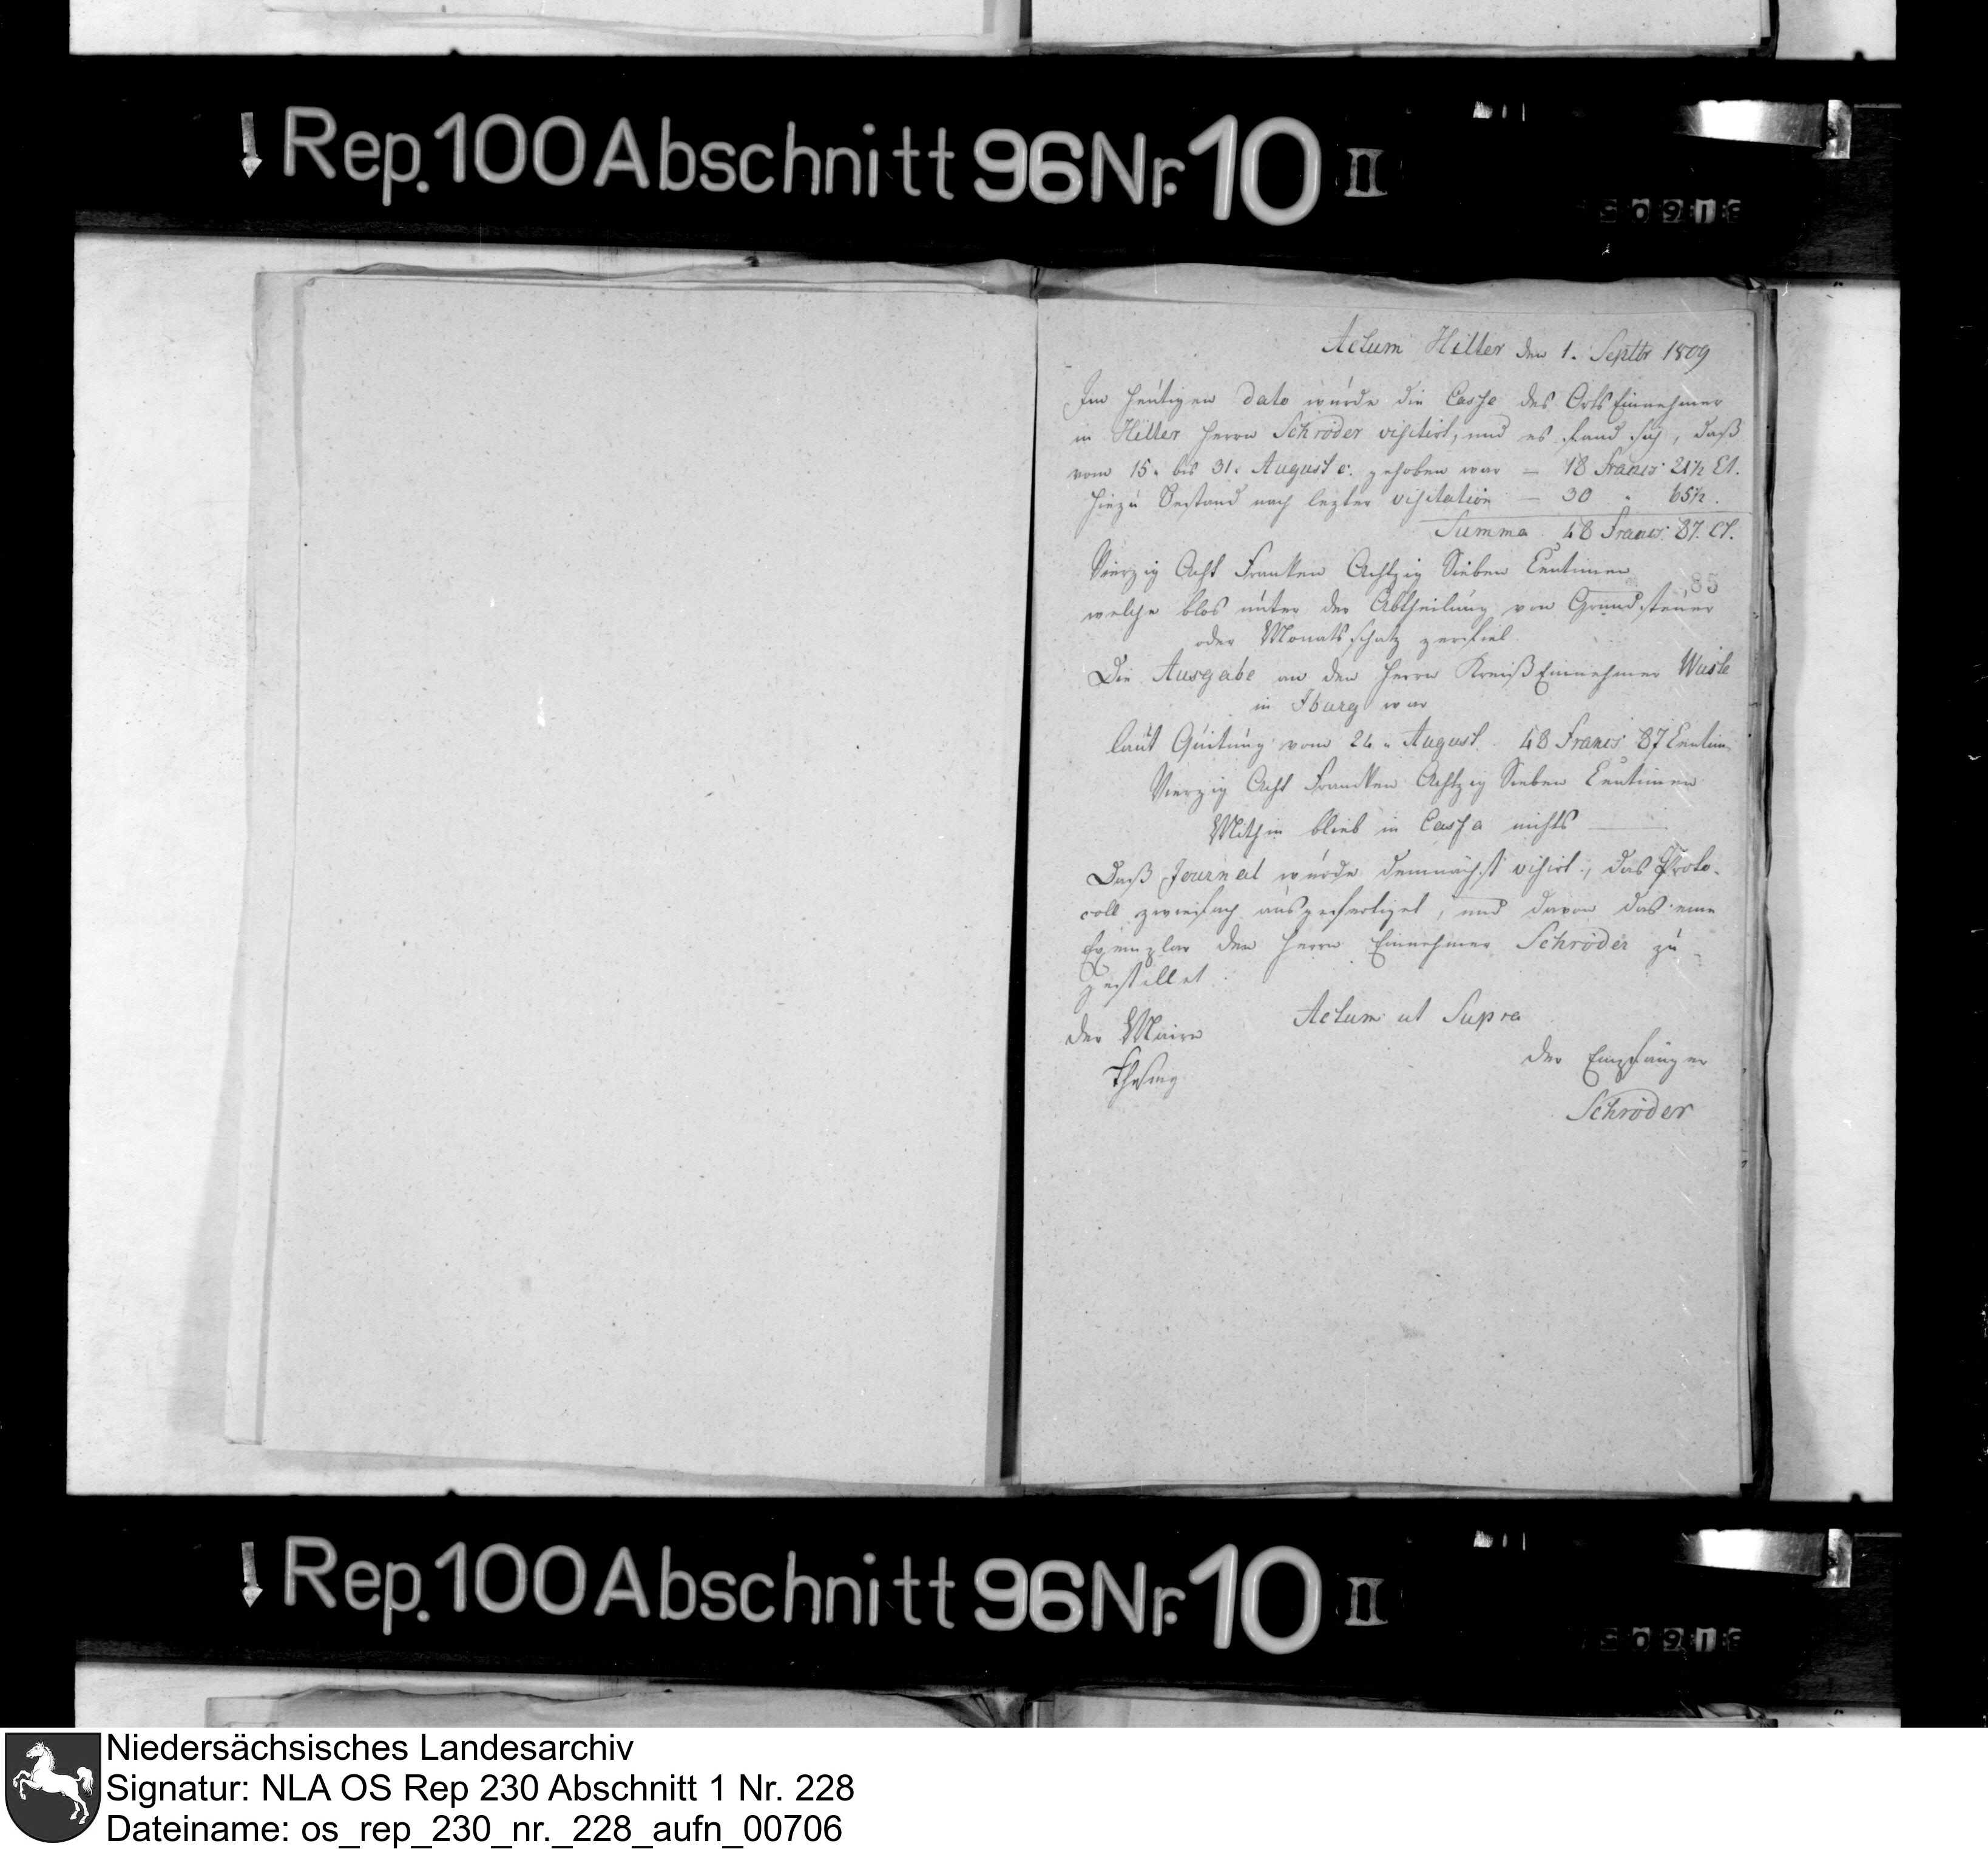 Rep. 100 Abschnitt 96 Nr. 10 II
Actum Hilter den 1. Septbr 1809
Im heutigen dato wurde die Casse des Orts Einnehmer
in Hilter Herrn Schröder visitirt, und es fand sich, daß
vom 15. bis 31. August c. gehoben war — 18 Francs 21½ Ct.
hiezu Bestand nach lezter visitation — 30 " 65½.
Summa 48 Francs 87. Ct.
Vierzig Acht Franken Achtzig Sieben Centimen
85
welche blos unter der Abtheilung von Grundsteuer
oder Monatsschatz zerfiel.
Die Ausgabe an den Herrn Kreiß Einnehmer
in Iburg war
laut Quitung vom 24. August 48 Francs 87 Centim.
Vierzig Acht Francken Achtzig Sieben Centimen
Mithin blieb in Cassa nichts —
Daß Journal wurde demnächst visirt, das Proto-
coll zweifach ausgefertiget, und davon das eine
Exemplar den Herrn Einnehmer Schröder zu-
gestellet.
Actum ut Supra
der Maire
der Empfänger
Schröder
Rep. 100 Abschnitt 96 Nr. 10 II
Niedersächsisches Landesarchiv
Signatur: NLA OS Rep 230 Abschnitt 1 Nr. 228
Dateiname: os_rep_230_nr._228_aufn_00706